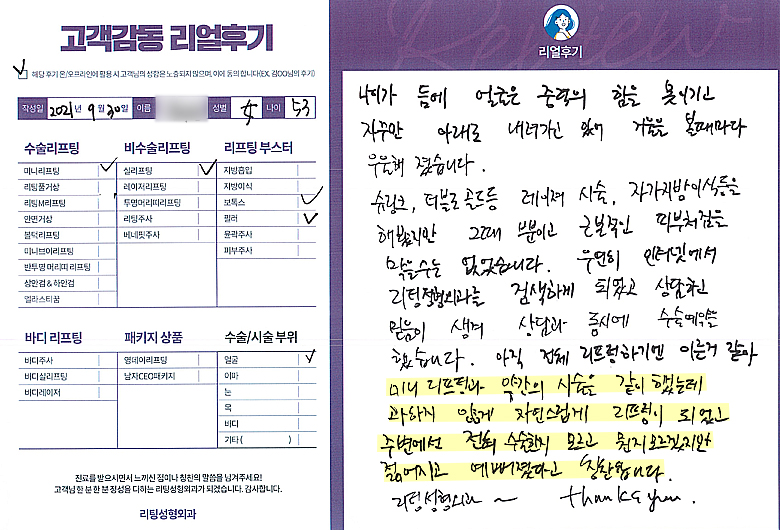 고객감동 리얼후기
해당 후기 온/오프라인에 활용 시 고객님의 성함은 노출되지 않으며, 이에 동의 합니다(EX. 김OO님의 후기)
작성일 2021년 9월 30일 이름 성별 女 나이 53
수술리프팅
미니리프팅
리팅풀거상
리팅M리프팅
안면거상
블턱리프팅
미니브이리프팅
반투명 머리띠 리프팅
상안검 & 하안검
엘라스티꿈
비수술리프팅
실리프팅
레이저리프팅
투명머리띠리프팅
리팅주사
베네핏주사
리프팅 부스터
지방흡입
지방이식
보톡스
필러
윤곽주사
피부주사
바디 리프팅
바디주사
바디실리프팅
바디레이저
패키지 상품
영데이리프팅
남자CEO패키지
수술/시술 부위
얼굴
이마
눈
목
바디
기타 ( )
진료를 받으시면서 느끼신 점이나 칭찬의 말씀을 남겨주세요!
고객님 한 분 한 분 정성을 다하는 리팅성형외과가 되겠습니다. 감사합니다.
리팅성형외과
Review
리얼후기
나이가 듬에 얼굴은 중력의 힘을 못이기고
자꾸만 아래로 내려가고 있어 거울을 볼때마다
우울해 졌습니다.
슈링크, 더블로 골드등 레이져 시술, 자가지방이식등을
해봤지만 그때 뿐이고 근본적인 피부처짐을
막을수는 없었습니다. 우연히 인터넷에서
리팅성형외과를 검색하게 되었고 상담하고
믿음이 생겨 상담과 동시에 수술예약을
했습니다. 아직 전체 리프팅하기엔 이른거 같아
미니 리프팅과 약간의 시술을 같이 했는데
과하지 않게 자연스럽게 리프팅이 되었고
주변에서 전혀 수술한지 모르고 뭔지모르겠지만
젊어지고 예뻐졌다고 칭찬합니다.
리팅성형외과 ~ thank you.